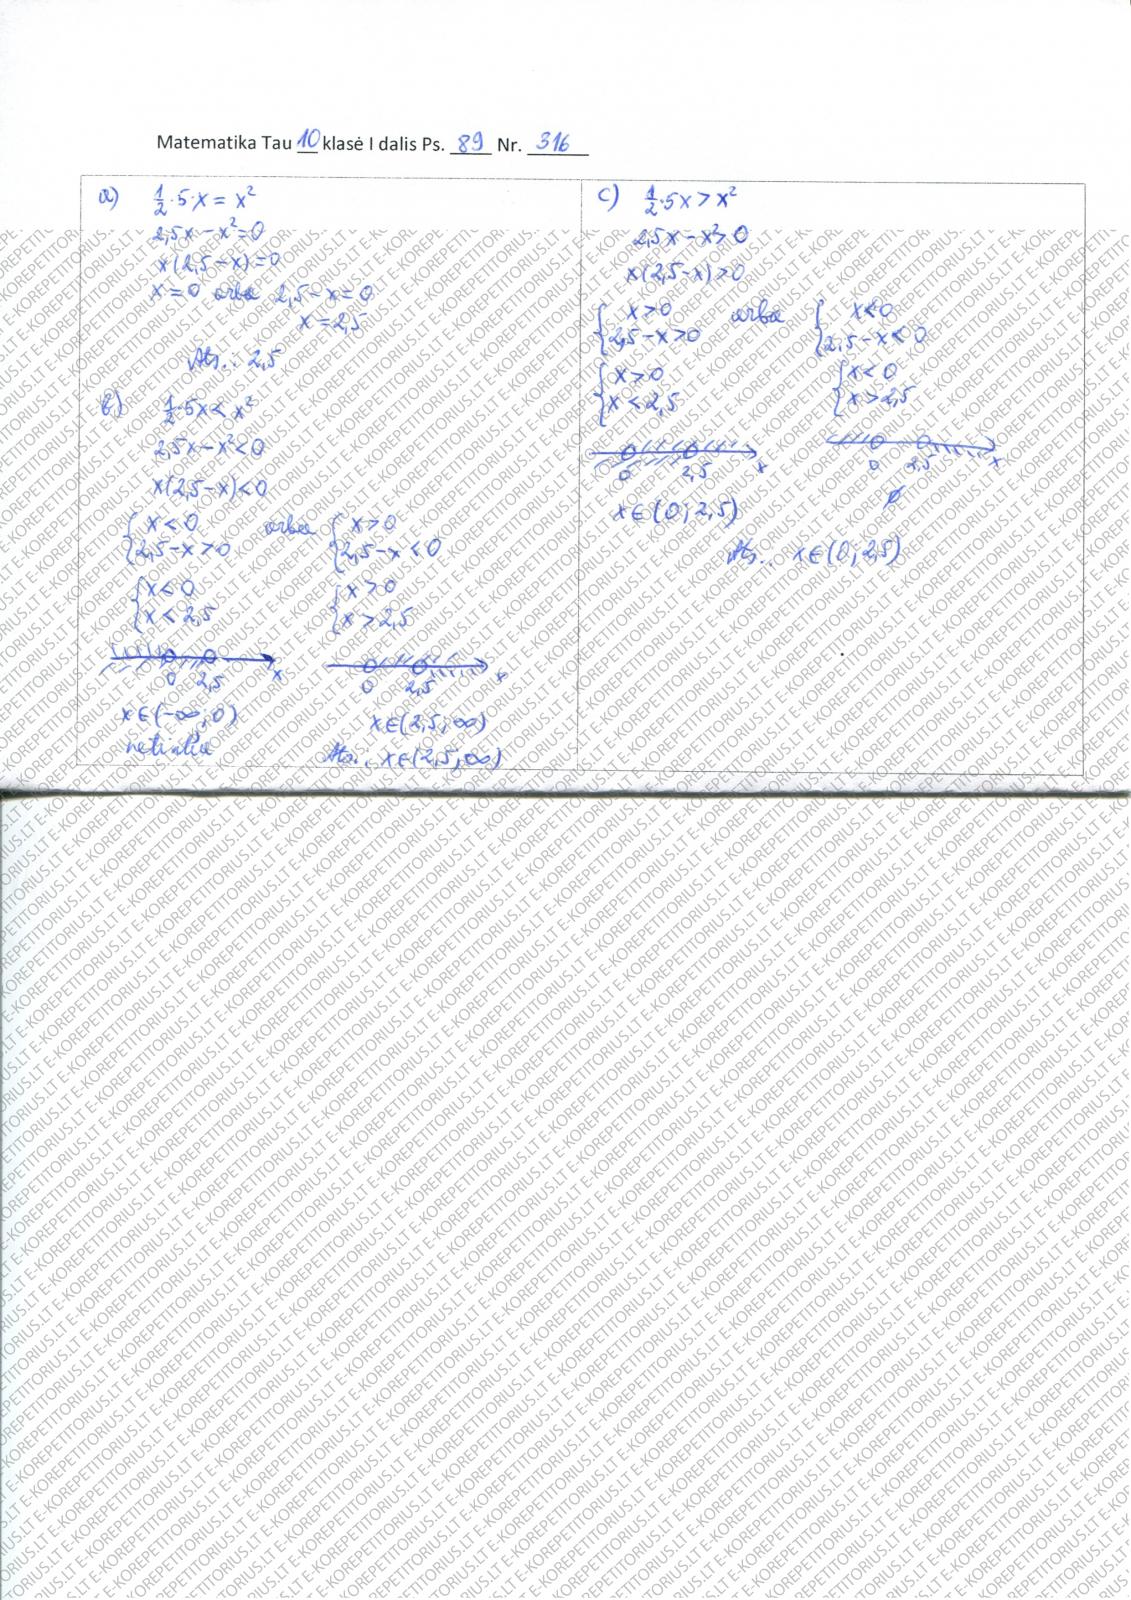 Matematika Tau 10 klasė I dalis Ps. 89 Nr. 316
a) 1/2 · 5 · x = x²
2,5x − x² = 0
x(2,5 − x) = 0
x = 0 arba 2,5 − x = 0
x = 2,5
Ats.: 2,5
b) 1/2 · 5x < x²
2,5x − x² < 0
x(2,5 − x) < 0
{ x < 0 arba { x > 0
{ 2,5 − x > 0 { 2,5 − x < 0
{ x < 0 { x > 0
{ x < 2,5 { x > 2,5
0 2,5 x 0 2,5 x
x ∈ (−∞; 0) x ∈ (2,5; ∞)
netinka Ats.: x ∈ (2,5; ∞)
c) 1/2 · 5x > x²
2,5x − x² > 0
x(2,5 − x) > 0
{ x > 0 arba { x < 0
{ 2,5 − x > 0 { 2,5 − x < 0
{ x > 0 { x < 0
{ x < 2,5 { x > 2,5
0 2,5 x 0 2,5 x
x ∈ (0; 2,5) ∅
Ats.: x ∈ (0; 2,5)
E-KOREPETITORIUS.LT